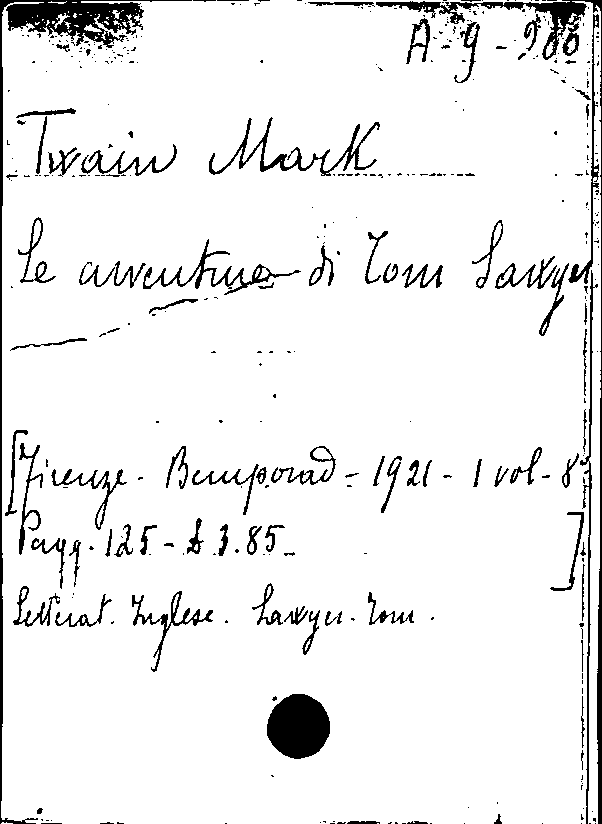 A-9-900
Twain Mark
Le avventure di Tom Sawyer
[Firenze - Bemporad - 1921 - 1 vol - 8°
Pagg. 125 - £ 3.85 - ]
Letterat. Inglese. Sawyer. Tom.